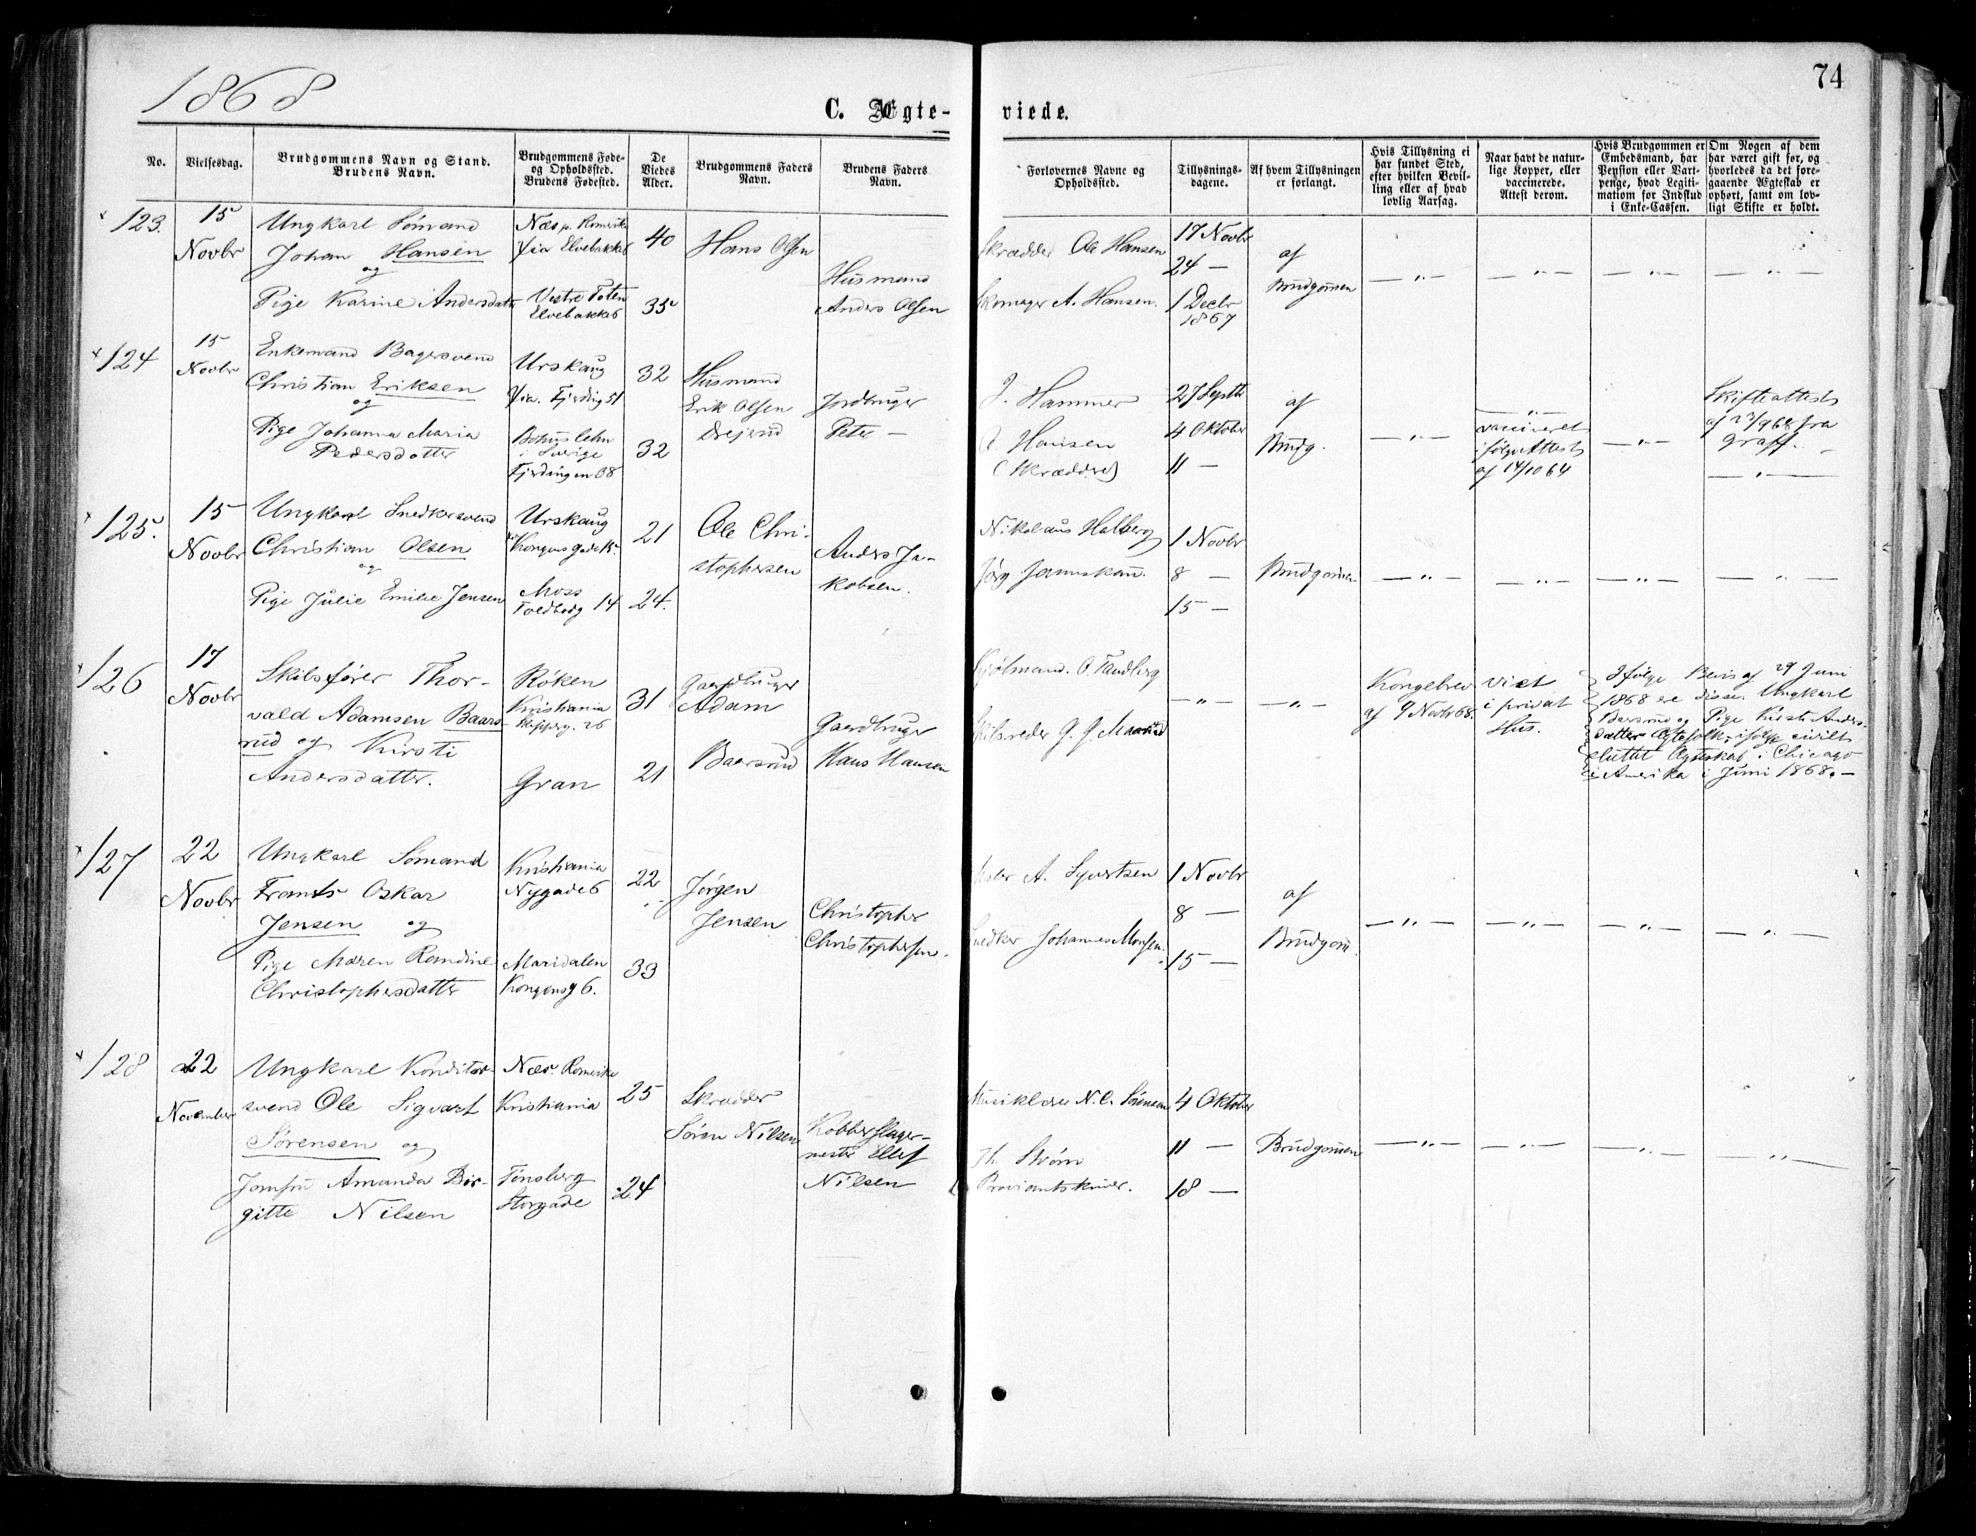 1868
74
C. Ægte-
viede.
No.
Vielsesdag.
Brudgommens Navn og Stand.
Brudens Navn.
Brudgommens Føde-
og Opholdssted.
Brudens Fødested.
De
Viedes
Alder.
Brudgommens Faders
Navn.
Brudens Faders
Navn.
Forlovernes Navne og
Opholdssted.
Tillysnings-
dagene.
Af hvem Tillysningen
er forlangt.
Hvis Tillysning ei
har fundet Sted,
efter hvilken Bevil-
ling eller af hvad
lovlig Aarsag.
Naar havt de natur-
lige Kopper, eller
vaccinerede.
Attest derom.
Hvis Brudgommen er
Embedsmand, har
Pension eller Vart-
penge, hvad Legiti-
mation for Indskud
i Enke-Cassen.
Om Nogen af dem
har været gift før, og
hvorledes da det fore-
gaaende Ægteskab er
ophørt, samt om lov-
ligt Skifte er holdt.
123.
15
Novbr
Ungkarl Sømand
Johan Hansen
og
Pige Karine Andersdatt
Næs p. Romerike
Elvebakke 6
Vestre Toten
Elvebakke 6
40
35
Hans Olsen
Husmand
Anders Olsen
Skrædder Ole Hansen
Skomager A. Hansen.
17 Novbr
24 —
1 Decbr
1867
af
Brudgommen
— " —
— " —
— " —
— " —
124
15
Novbr
Enkemand Bagersvend
Christian Eriksen
og
Pige Johanna Maria
Pedersdatter
Urskaug
Fjerding 51
Bohus Lehn
i Sverige
Fjerdingen 38
32
32
Husmand
Erik Olsen
Drejerud
Jordbruger
Peter —
J. Hammer
Hansen
(Skrædder)
27 Septb
4 Oktober
11 —
af
Brudg.
— " —
— " —
vaccineret
ifølge Attest
af 14/10 64
— " —
Skifteattest
af 23/9 68 fra
Graff. —
— " —
125.
15
Novbr
Ungkarl Snedkersvend
Christian Olsen
og
Pige Julie Emilie Jensen
Urskaug
Kongens Gade 15
Moss
Toldbodg 14
21
24.
Ole Chri-
stophersen
Anders Ja-
kobsen.
Nikolaus Halberg
Jørg
1 Novbr
8 —
15 —
Brudgommen
— " —
— " —
— " —
— " —
126
17
Novbr
Skibsfører Thor-
vald Adamsen Baars-
rud og Kirsti
Andersdatter.
Røken
Kristiania
26
Gran
31
21
Gaardbruger
Adam
Baarsrud
Gaardbruger
Hans Hansen
O. Tandberg
Skibsreder G. G.
— " —
— " —
Kongebrev
af 9 Novbr 68.
viet
i privat
Hus.
Ifølge Bevis af 29 Juni
1868 ere disse. Ungkarl
Baarsrud og Pige Kirsti Anders-
datter Ægtefolk, ifølge civilt
sluttet Ægteskab i Chicago
i Amerika i Juni 1868. —
127
22
Novbr
Ungkarl Sømand
Frants Oskar
Jensen og
Pige Maren Randine
Christophersdatter
Kristiania
Nygade 6
Maridalen
Kongensg 6.
22
33
Jørgen
Jensen
Christopher
Christophersen.
A. Syvertsen
Snedker Johannes Monsen.
1 Novbr
8 —
15 —
af
Brudgom.
— " —
— " —
— " —
— " —
128
22
November
Ungkarl Konditor-
svend Ole Sigvart
Sørensen og
Jomfru Amanda Bir-
gitte Nilsen
Næs. Romerike
Kristiania
Tønsberg
Storgade
25
24
Skrædder
Søren Nilsen
Kobberslager-
mester Ellef
Nilsen
Musiklærer N. C. Sørensen
Th. Strøm
Proviantskriver.
4 Oktober
11 —
18 —
Brudgommen
— " —
— " —
— " —
— " —